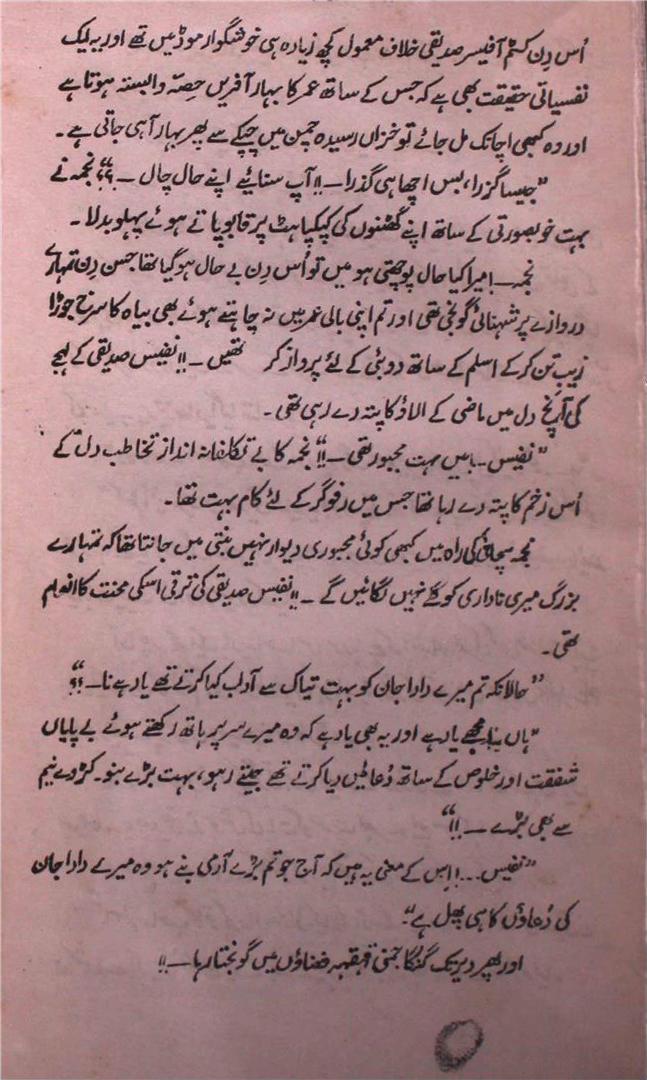 اُس دِن کسٹم آفیسر صدیقی خلاف معمول کچھ زیادہ ہی خوشگوار موڈ میں تھے اور یہ ایک
نفسیاتی حقیقت بھی ہے کہ جس کے ساتھ عمر کا بہار آفریں حِصّہ وابستہ ہوتا ہے
اور وہ کبھی اچانک مل جائے تو خزاں رسیدہ چمن میں چپکے سے پھر بہار آ ہی جاتی ہے۔
”جیسا گزرا، بس اچھا ہی گذرا۔!! آپ سنائیے اپنے حال چال ۔؟؟“ نجمہ نے
بہت خوبصورتی کے ساتھ اپنے گھٹنوں کی کپکپاہٹ پر قابو پاتے ہوئے پہلو بدلا۔
نجمہ۔! میرا کیا حال پوچھتی ہو میں تو اُس دِن بے حال ہو گیا تھا جس دِن تمہارے
دروازے پر شہنائی گونجی تھی اور تم اپنی بالی عمر میں نہ چاہتے ہوئے بھی بیاہ کا سرخ جوڑا
زیب تن کر کے اسلم کے ساتھ دوبئی کے لئے پرواز کر تھیں۔!! نفیس صدیقی کے لہجے
کی آنچ دل میں ماضی کے الاؤ کا پتہ دے رہی تھی۔
”نفیس۔! میں بہت مجبور تھی۔!!“ نجمہ کا بے تکلفانہ انداز تخاطب دل کے
اُس زخم کا پتہ دے رہا تھا جس میں رفوگر کے لئے کام بہت تھا۔
نجمہ سچائی کی راہ میں کبھی کوئی مجبوری دیوار نہیں بنتی میں جانتا تھا کہ تمہارے
بزرگ میری ناداری کو گلے نہیں لگائیں گے۔!! نفیس صدیقی کی ترقی اسکی محنت کا انعام
تھی۔
”حالانکہ تم میرے دادا جان کو بہت تپاک سے آداب کیا کرتے تھے یاد ہے نا۔؟؟“
”ہاں ہاں مجھے یاد ہے اور یہ بھی یاد ہے کہ وہ میرے سر پر ہاتھ رکھتے ہوئے بے پایاں
شفقت اور خلوص کے ساتھ دُعائیں دیا کرتے تھے جیتے رہو، بہت بڑے بنو۔ کڑوے نیم
سے بھی بڑے ۔!!“
”نفیس...! اِس کے معنی یہ ہیں کہ آج جو تم بڑے آدمی بنے ہو وہ میرے دادا جان
کی دُعاؤں کا ہی پھل ہے“۔
اور پھر دیر تک گنگا جمنی قہقہہ فضاؤں میں گونجتا رہا۔!!